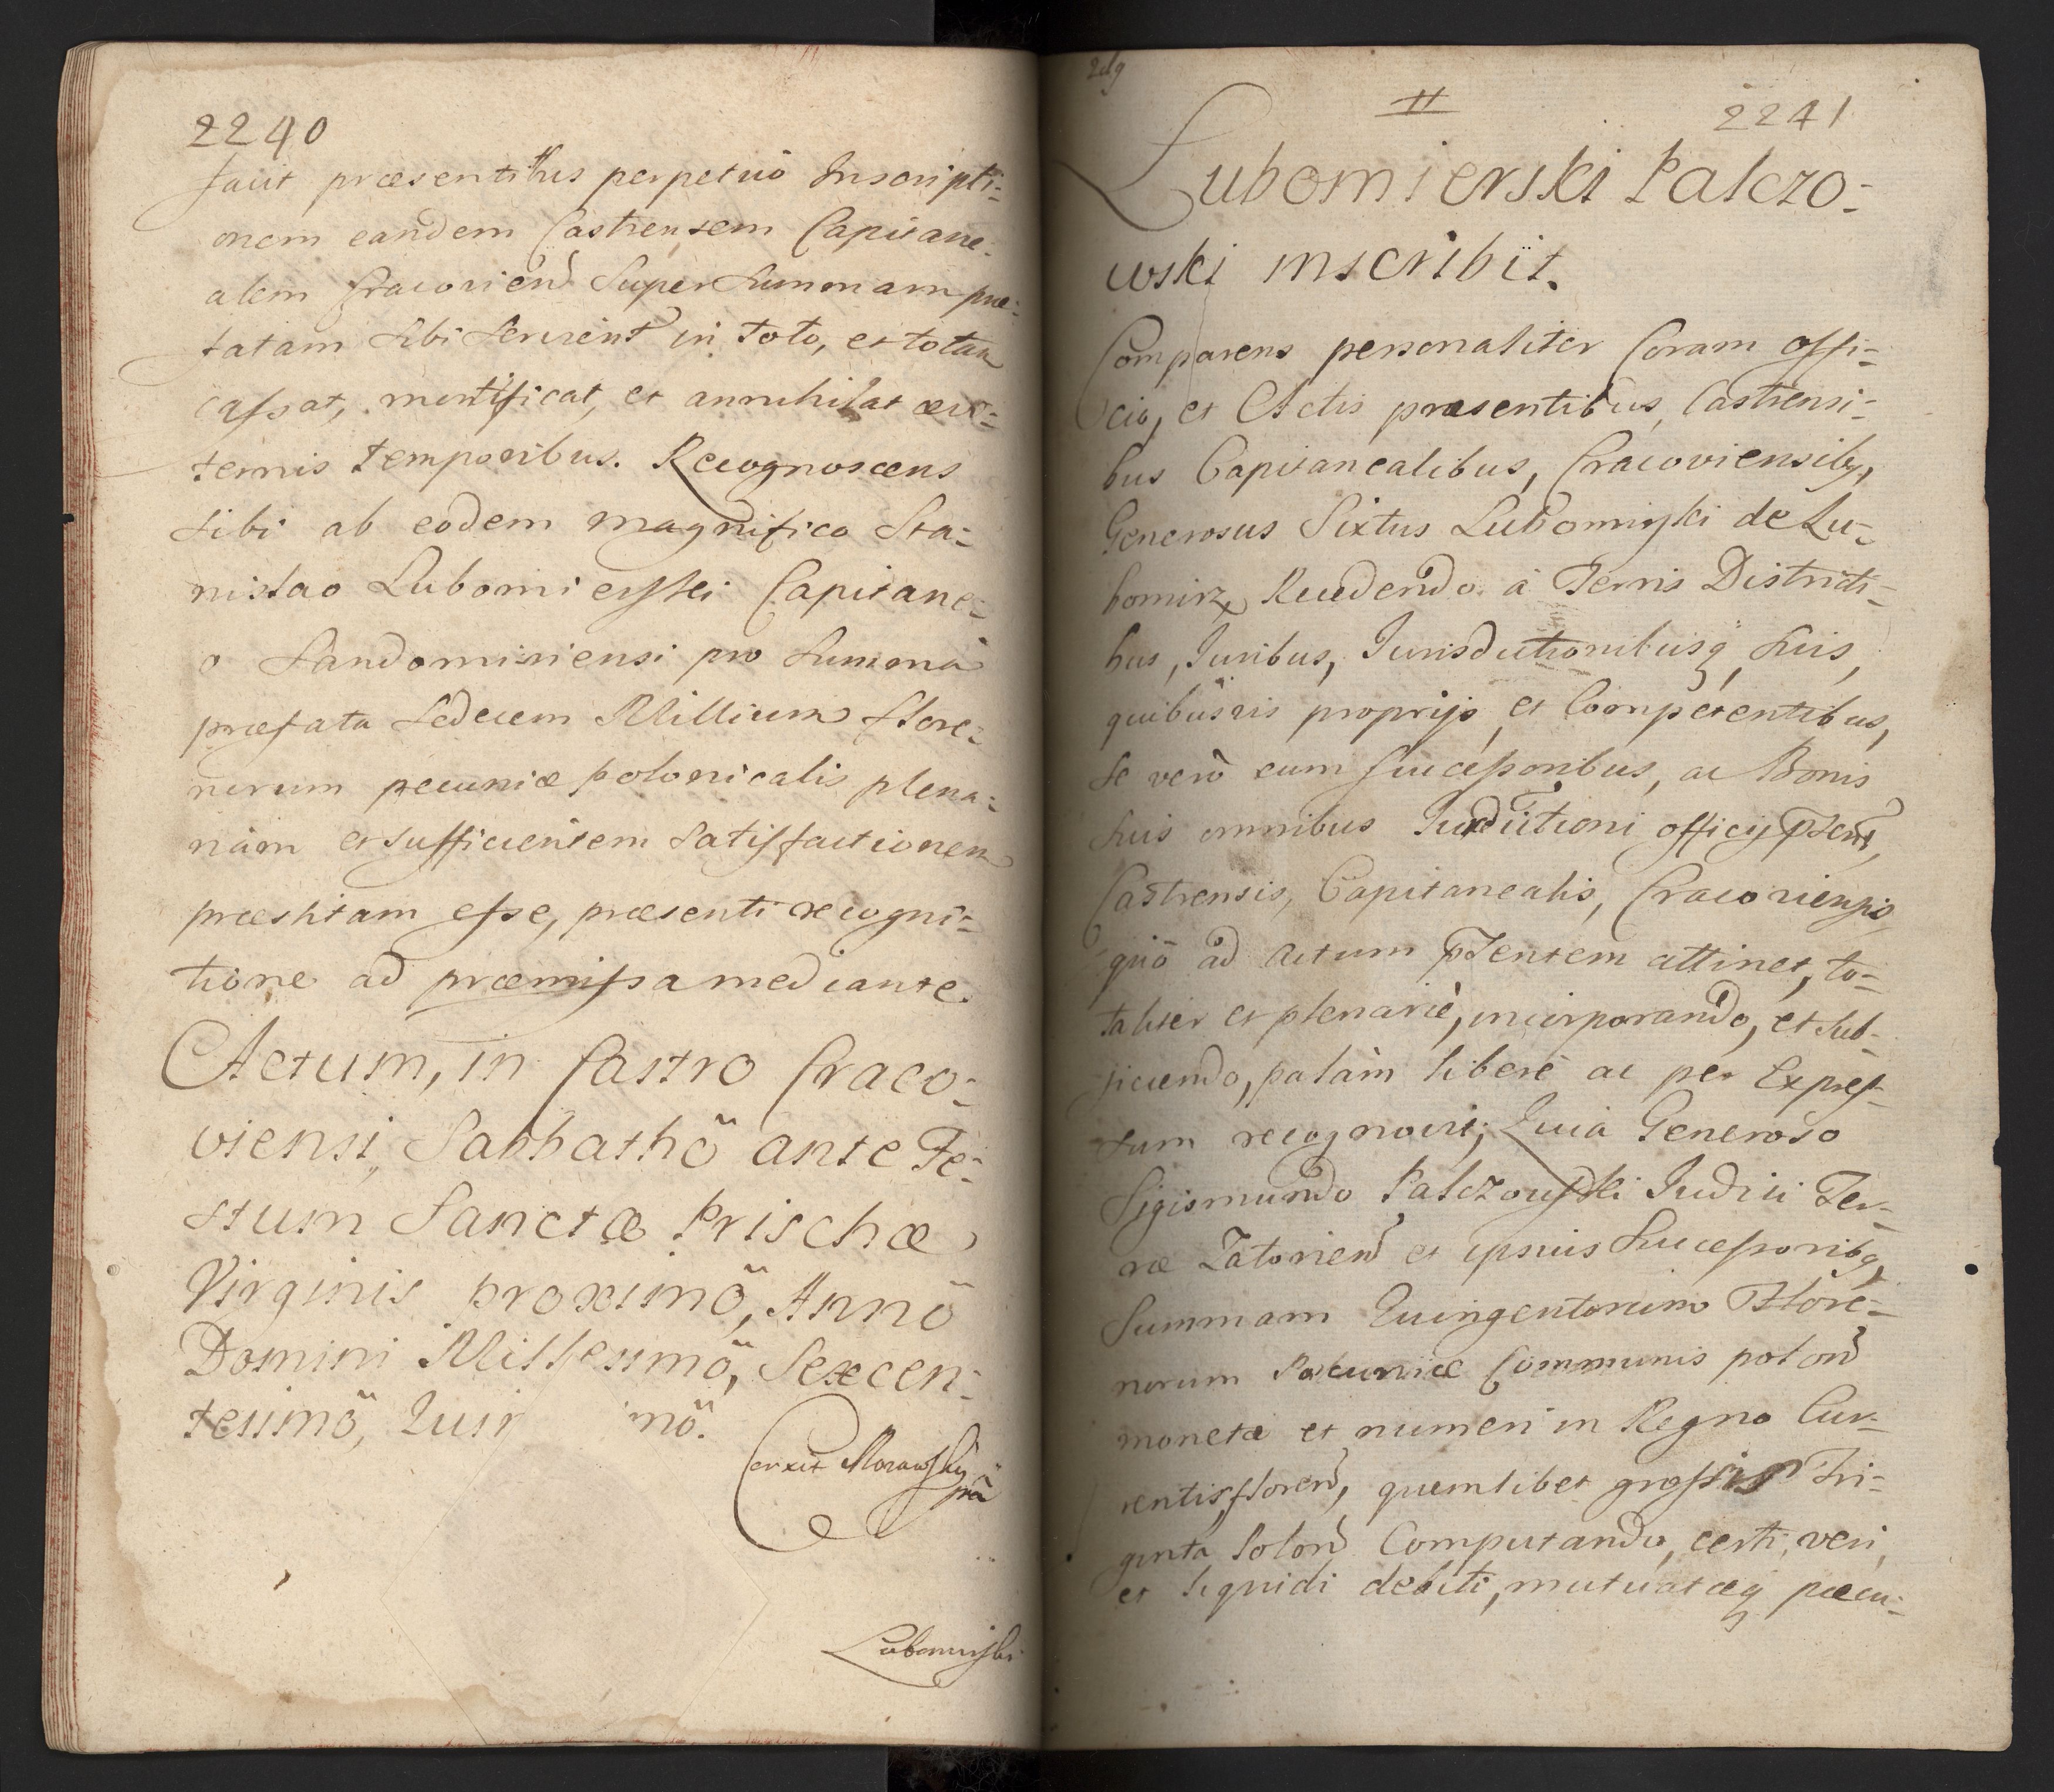 2240
facit præsentibus perpetuó Inscripti=
onem eandem Castrensem Capitane=
alem Cracovien Super Summam præ=
fatam Sibi Servient in toto, et totam
cassat, mortificat, et annihilat ævi=
ternis temporibus. Recognoscens
Sibi ab eodem magnifico Sta=
nislao Lubomierski Capitane=
o Sandomiriensi pro Summa
præfata Sedecem Millium flore=
norum pecuniæ polonicalis plena=
nàm et sufficientem Satisfactionem
præstitam esse, præsenti recogni=
tione ad præmissa mediante.
Actum, in Castro Craco=
viensi, Sabbathō ante Fe=
stum Sanctæ Prischæ
Virginis proximō, Annō
Domini Millesimō, Sexcen=
tesimō, Quin mō.
Corxit Morawsky
mp
Lubomirski
249
II
2241
Lubomierski Palczo=
wski inscribit.
Comparens personaliter Coram offi=
cio, et Actis præsentibus, Castrensi=
bus Capitanealibus, Cracoviensibq,
Generosus Sixtus Lubomirski de Lu=
bomirz, Recedendo à Terris Districti=
bus, Juribus, Jurisdictionibusq, Suis,
quibusvis proprijs, et Competentibus,
Se verò cum Successoribus, ac Bonis
Suis omnibus Jurdictioni officij pscnt,
Castrensis, Capitanealis, Cracoviensis
quō ad actum psentem attinet, to=
taliter et plenariè, incorporando, et Sub=
jiciendo, palàm liberè ac per Expres=
sum recognovit; Quia Generoso
Sigismundo Palczowski Judici Ter=
ræ Zatorien et ipsius Successoribq,
Summam Quingentorum Flore=
norum Pæcuniæ Communis polon
monetæ et numeri in Regno Cur=
rentis, floren, quemlibet grossis Tri=
ginta Polon Computando, certi, veri,
et liquidi debiti, mutuatæq pæcu=